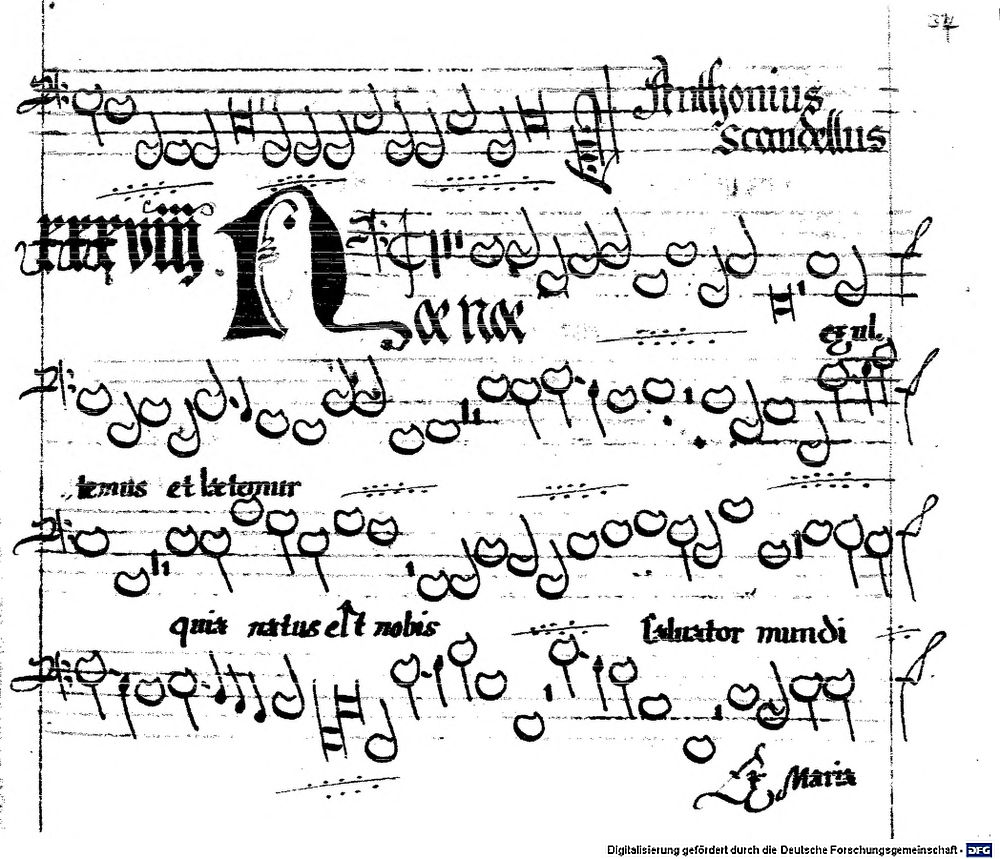 34
Anthonius
Scandellus
xxxviiij
Næ næ
exul
temus et lætemur
quia natus est nobis
saluator mundi
Maria
Digitalisierung gefördert durch die Deutsche Forschungsgemeinschaft - DFG